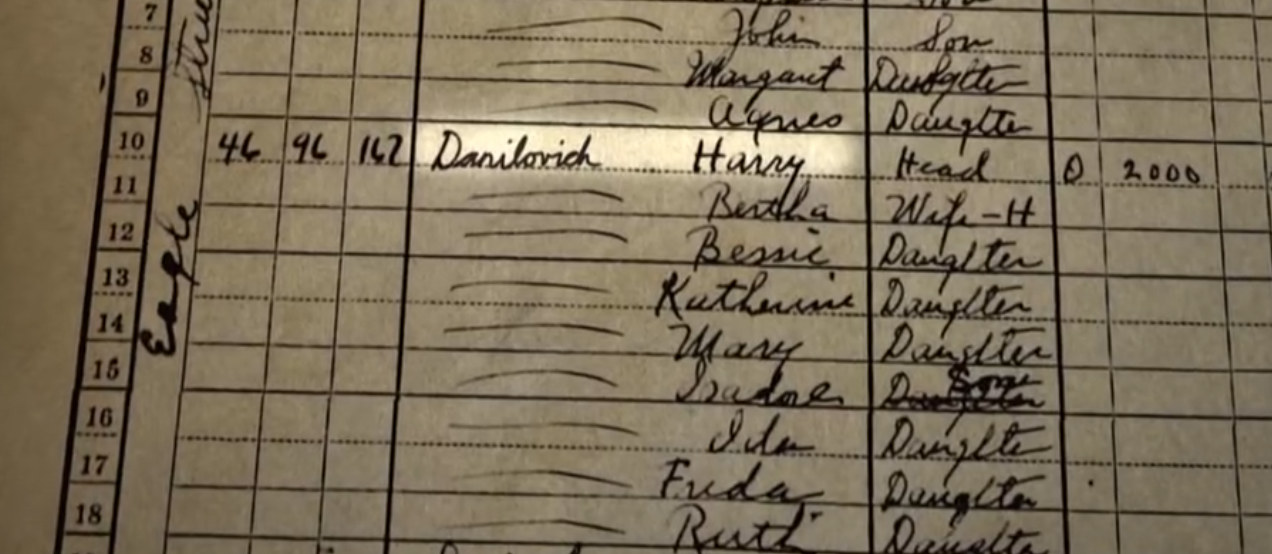 7 John Son
8 Margaret Daughter
9 Agnes Daughter
10 46 96 162 Danilovich Harry Head O 2000
11 Bertha Wife-H
12 Bessie Daughter
13 Katherine Daughter
14 Mary Daughter
15 Isadore Son
16 Ida Daughter
17 Freda Daughter
18 Ruth Daughter
Eagle